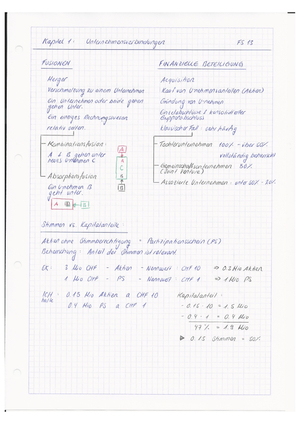 Kapitel 1: Unternehmensverbindungen FS 13
FUSIONEN
Merger
Verschmelzung zu einem Unternehmen
Ein Unternehmen oder beide gehen
gehen unter.
Ein einziges Rechnungswesen
relativ selten.
Kombinationsfusion
A & B gehen unter
neues Unternehmen C
Absorptionsfusion
Ein Unternehmen B
geht unter.
A
B
A
C
B
A B
FINANZIELLE BETEILIGUNG
Acquisition
Kauf von Unternehmensanteilen (Aktien)
Gründung von Unternehmen
Einzelabschluss & konsolidierter
Gruppenabschluss
Klassischer Fall sehr häufig
Tochterunternehmen 100% - über 50%
vollständig beherrscht
Gemeinschaftsunternehmen 50%
(Joint Venture)
Assoziierte Unternehmen - unter 50% - 20%
Stimmen vs. Kapitalanteile:
Aktie ohne Stimmberechtigung = Partizipationsschein (PS)
Beherrschung - Anteil der Stimmen ist relevant.
3 Mio CHF - Aktien - Nennwert CHF 10 ⇒ 0.3 Mio Aktien
1 Mio CHF - PS - Nennwert CHF 1 ⇒ 1 Mio PS
0.15 Mio Aktien à CHF 10
0.4 Mio PS à CHF 1
Kapitalanteil:
- 0.15 · 10 = 1.5 Mio
- 0.4 · 1 = 0.4 Mio
47% = 1.9 Mio
0.15 Stimmen = 50%